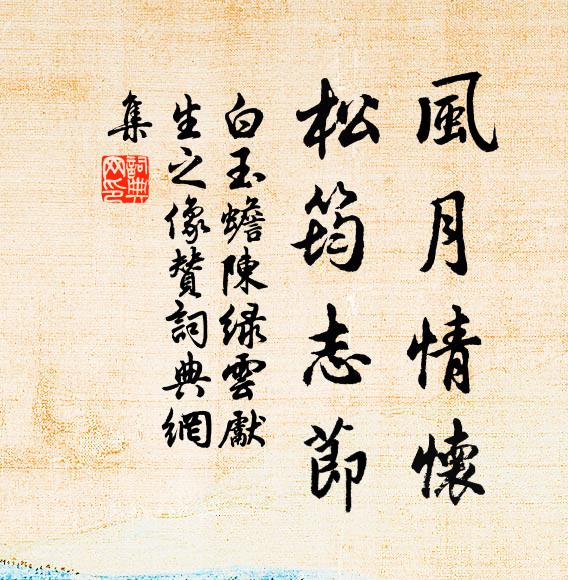 風月情懷
松筠志節
白玉蟾陳緑雲獻
生之像贊詞典網
集
詞典
网印